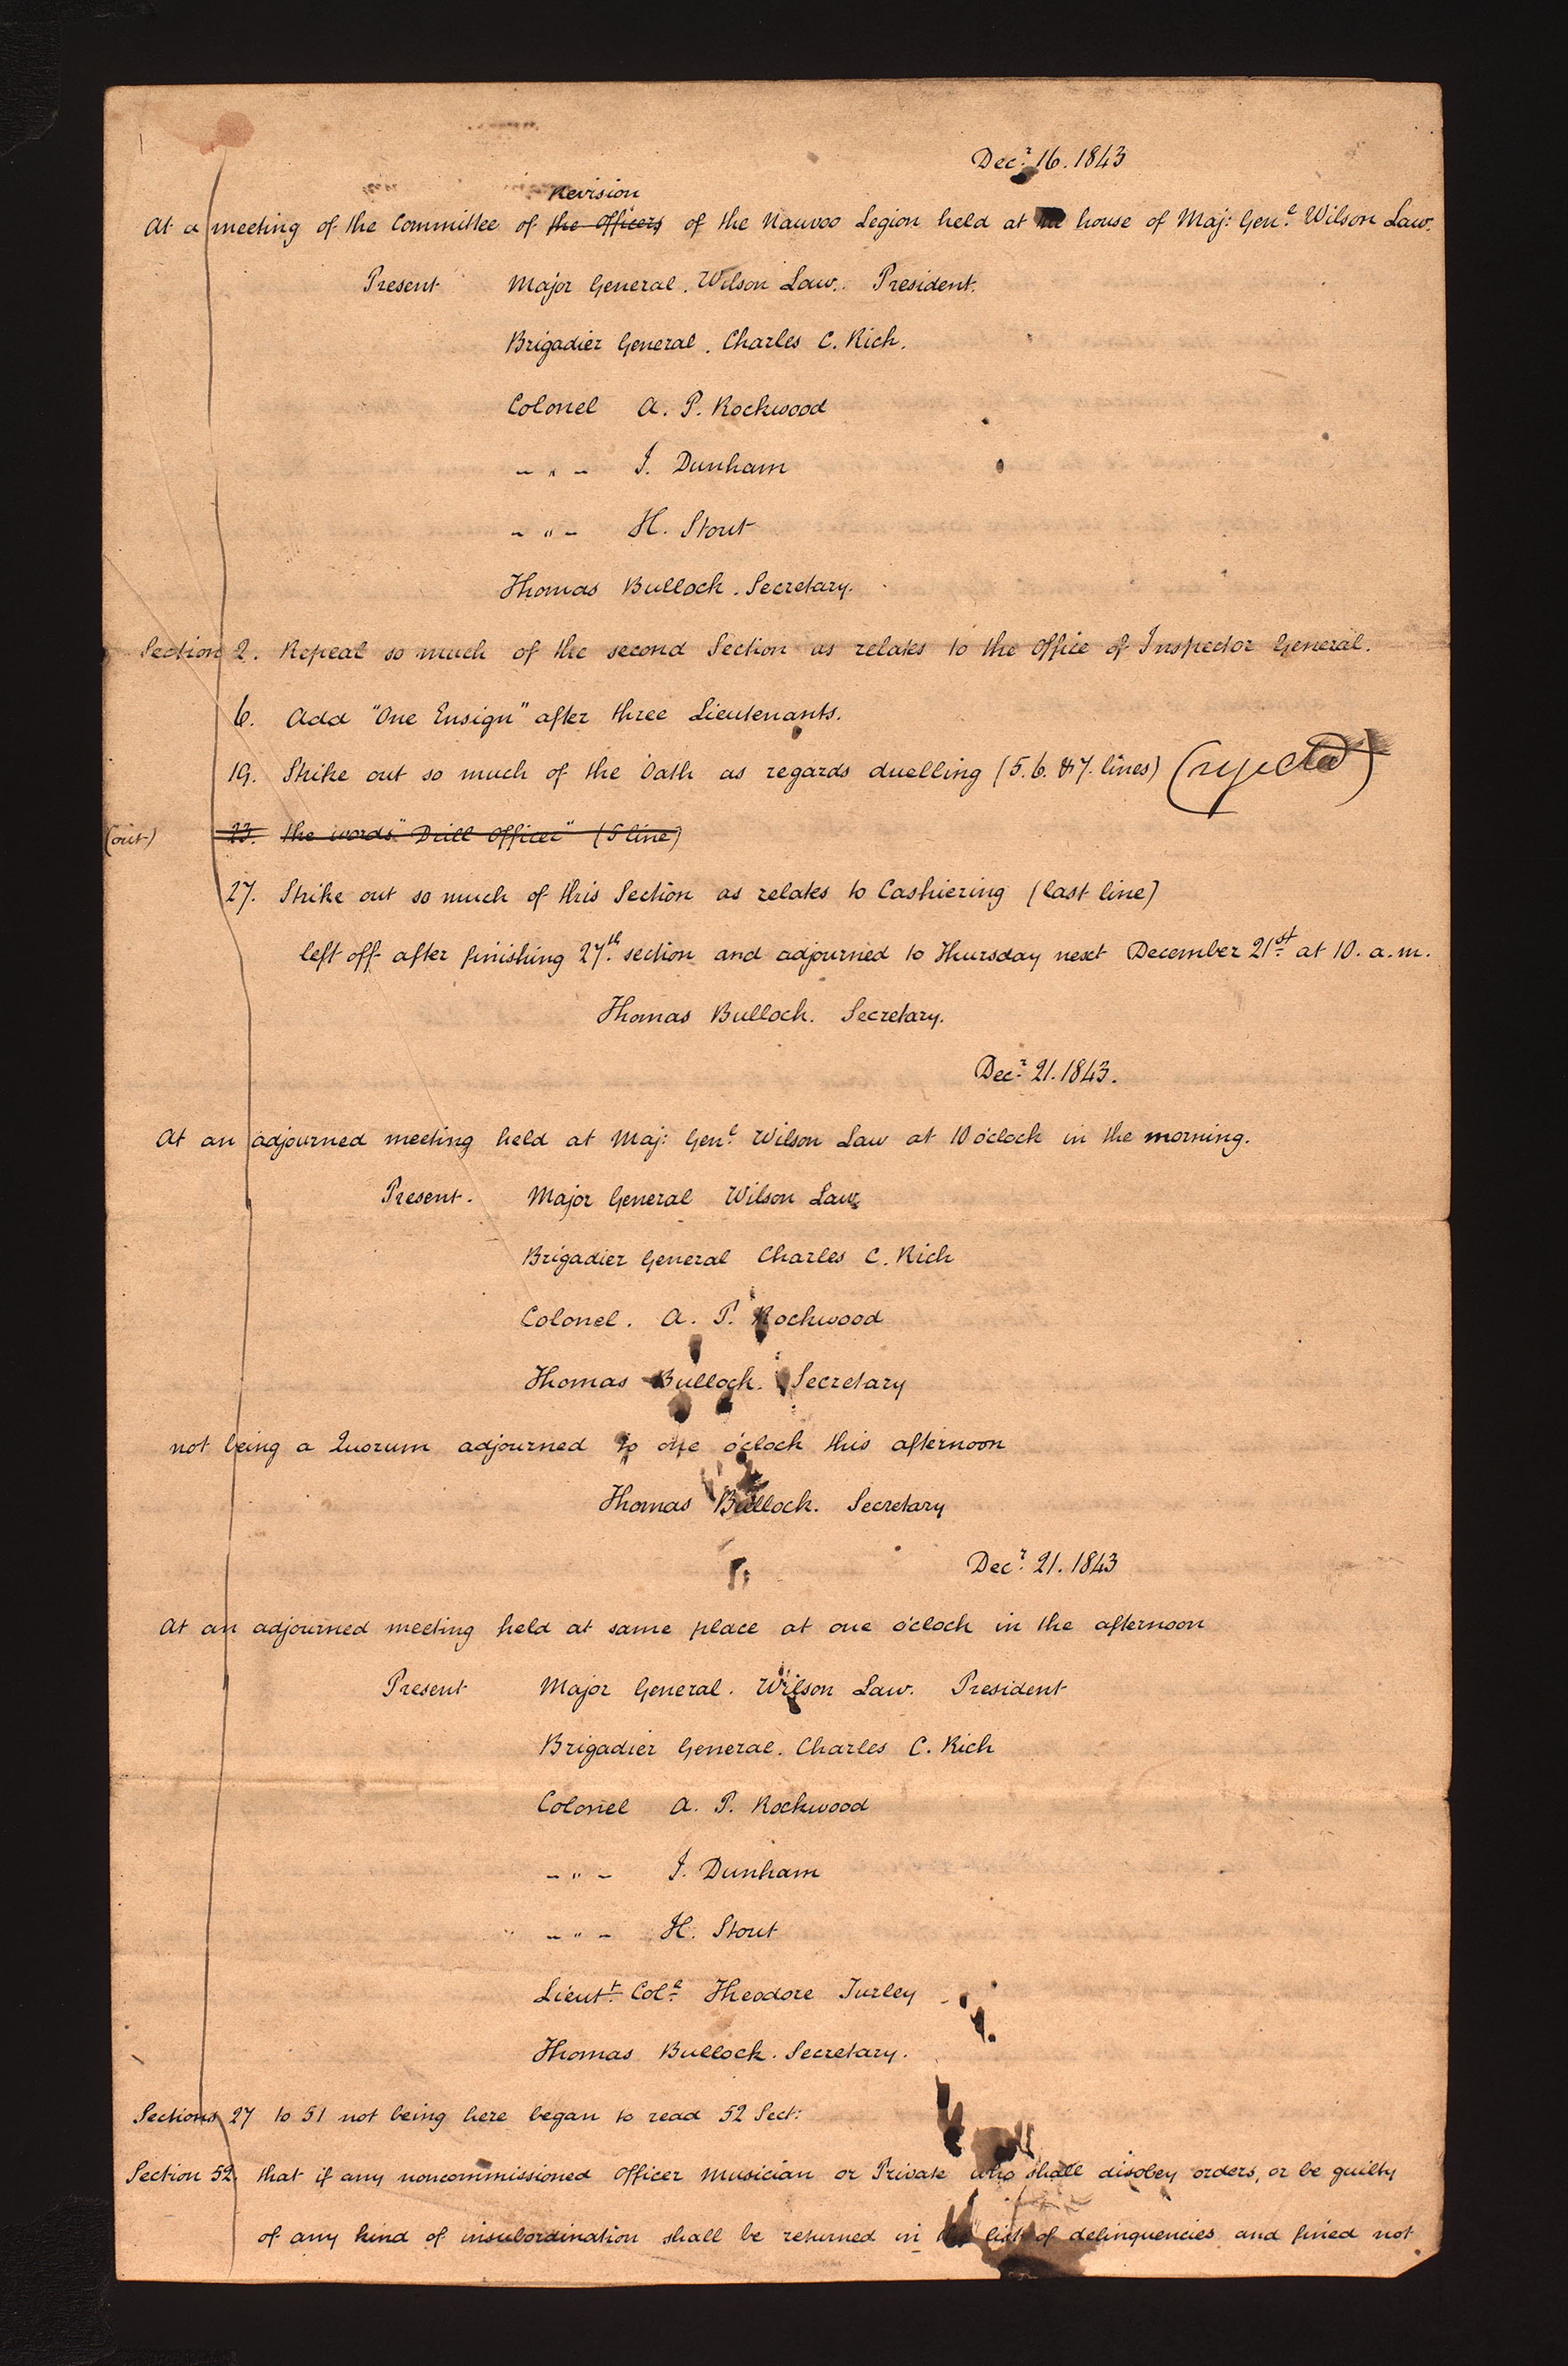 Decr. 16. 1843
Revision
At a meeting of the Committee of the Officers of the Nauvoo Legion held at the house of Maj: Genl. Wilson Law.
Present Major General. Wilson Law. President.
Brigadier General. Charles C. Rich.
Colonel A. P. Rockwood
- " - J. Dunham
- " - H. Stout
Thomas Bullock. Secretary.
Section 2. Repeal so much of the second Section as relates to the Office of Inspector General.
6. Add "One Ensign" after three Lieutenants.
19. Strike out so much of the Oath as regards duelling (5. 6. & 7. lines) (rejected)
(out) 23. the words "Drill Officer" (5 line)
27. Strike out so much of this Section as relates to Cashiering (last line)
left off after finishing 27th. section and adjourned to Thursday next December 21st at 10. a.m.
Thomas Bullock. Secretary.
Decr. 21. 1843.
At an adjourned meeting held at Maj: Genl. Wilson Law at 10 o'clock in the morning.
Present. Major General Wilson Law
Brigadier General Charles C. Rich
Colonel. A. P. Rockwood
Thomas Bullock. Secretary
not being a Quorum adjourned to one o'clock this afternoon
Thomas Bullock. Secretary
Decr. 21. 1843
At an adjourned meeting held at same place at one o'clock in the afternoon
Present Major General. Wilson Law. President
Brigadier General. Charles C. Rich
Colonel A. P. Rockwood
- " - J. Dunham
- " - H. Stout
Lieutt. Coll. Theodore Turley
Thomas Bullock. Secretary.
Sections 27 to 51 not being here began to read 52 Sect:
Section 52. that if any noncommissioned Officer Musician or Private who shall disobey orders, or be guilty
of any kind of insubordination shall be returned in the list of delinquencies and fined not